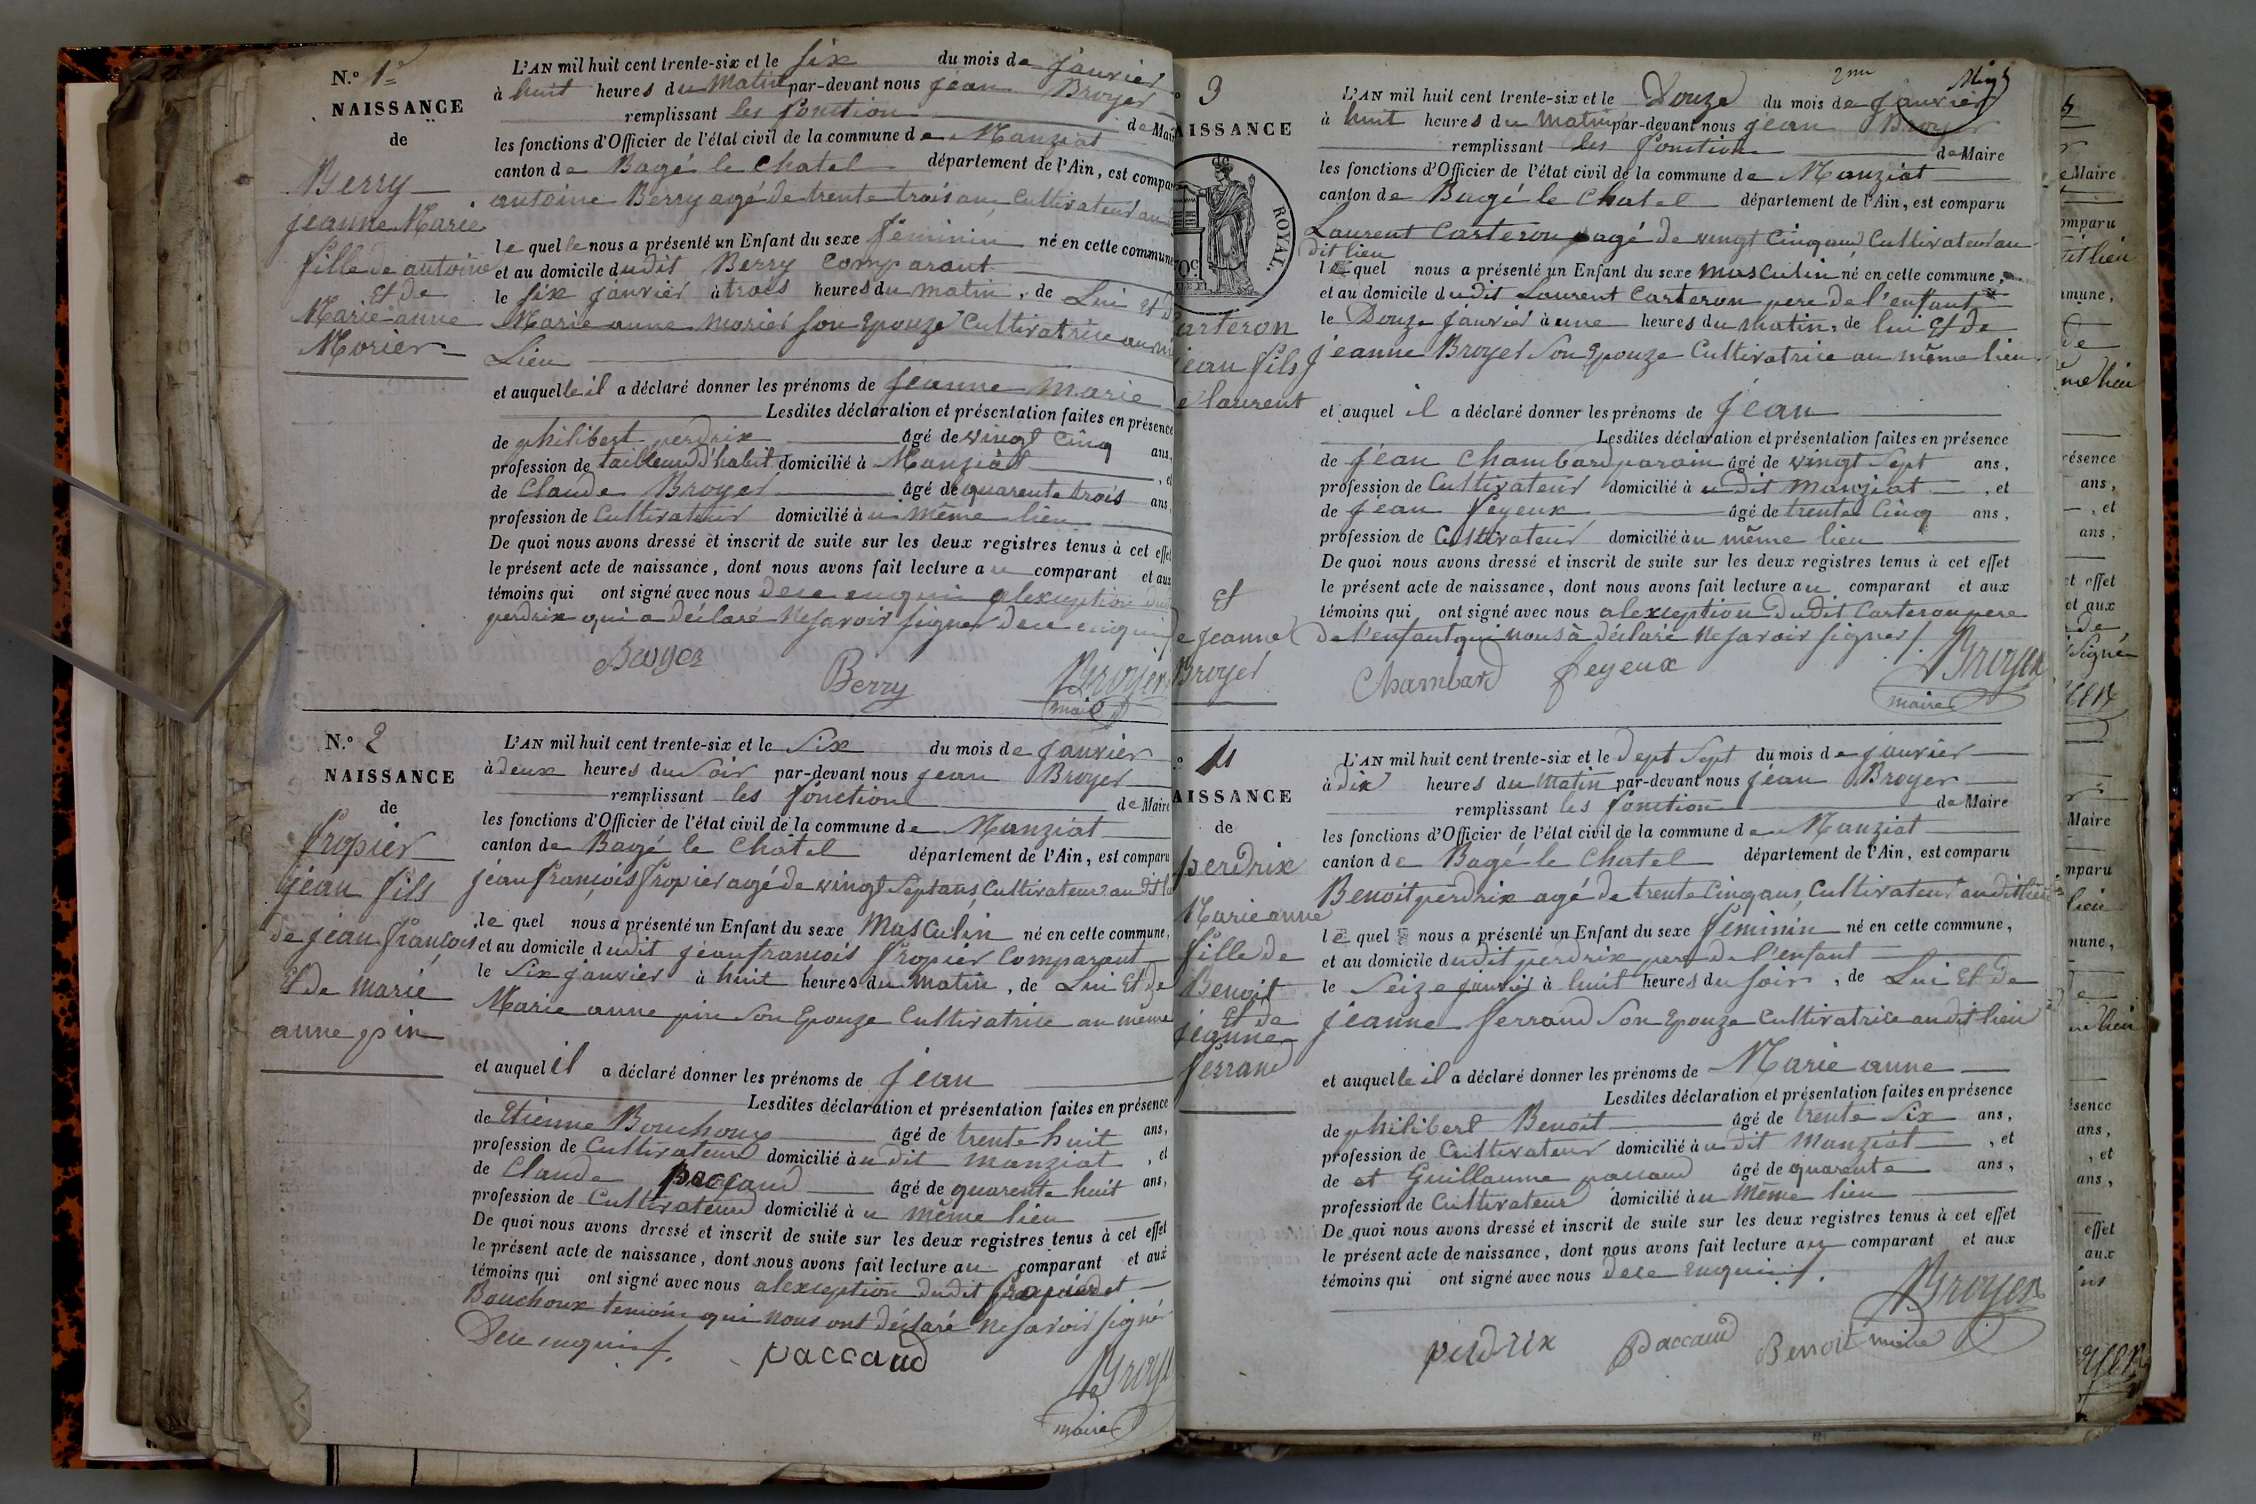 N.º 1er
NAISSANCE
de
Berry
jeanne Marie
fille de antoine
et de
Marie anne
Morier
L'AN mil huit cent trente-six et le six du mois de janvier
à huit heures du matin par-devant nous jean Broyer
remplissant les fonction de Maire
les fonctions d'Officier de l'état civil de la commune de Manziat
canton de Bagé le chatel département de l'Ain, est compa
antoine Berry agé de trente trois ans, Cultivateur au
le quel le nous a présenté un Enfant du sexe féminin né en cette commune
et au domicile dudit Berry comparant
le six janvier à trois heures du matin, de Lui et d
Marie anne morier son Epouze Cultivatrice au
Lieu
et auquelle il a déclaré donner les prénoms de Jeanne Marie
Lesdites déclaration et présentation faites en présence
de philibert perdrix âgé de vingt cinq ans,
profession de tailleur d'habit domicilié à Manziat, et
de Claude Broyer âgé de quarente trois ans,
profession de Cultivateur domicilié à u même lieu
De quoi nous avons dressé et inscrit de suite sur les deux registres tenus à cet effet
le présent acte de naissance, dont nous avons fait lecture au comparant et aux
témoins qui ont signé avec nous dece enquis alexception dudit
perdrix qui a déclaré ne savoir signer dece enquis
Broyer
Berry
Broyer
maire
N.º 2
NAISSANCE
de
fropier
jean fils
de jean françois
Et de marie
anne pin
L'AN mil huit cent trente-six et le Six du mois de janvier
à deux heures du Soir par-devant nous jean Broyer
remplissant les fonction de Maire
les fonctions d'Officier de l'état civil de la commune de Manziat
canton de Bagé le chatel département de l'Ain, est comparu
jean françois fropier agé de vingt Sept ans, Cultivateur au dit l
le quel nous a présenté un Enfant du sexe Masculin né en cette commune,
et au domicile dudit jean francois fropier Comparant
le Six janvier à huit heures du matin, de Lui Et de
Marie anne pin Son Epouze Cultivatrice au même
et auquel il a déclaré donner les prénoms de jean
Lesdites déclaration et présentation faites en présence
de Etienne Bouchoux âgé de trente huit ans,
profession de Cultivateur domicilié à u dit manziat, et
de Claude paccaud âgé de quarente huit ans,
profession de Cultivateur domicilié à u même lieu
De quoi nous avons dressé et inscrit de suite sur les deux registres tenus à cet effet
le présent acte de naissance, dont nous avons fait lecture au comparant et aux
témoins qui ont signé avec nous alexception dudit fropier et
Bouchoux temoin qui nous ont déclaré ne savoir signé
Dece enquis
paccaud
Broye
maire
3
AISSANCE
de
ROYAL.
arteron
jean fils
e laurent
et
e jeanne
Broyer
2me
L'AN mil huit cent trente-six et le Douze du mois de janvier
à huit heures du matin par-devant nous jean Broyer
remplissant les fonction de Maire
les fonctions d'Officier de l'état civil de la commune de Manziat
canton de Bagé le chatel département de l'Ain, est comparu
Laurent Carteron agé de vingt Cinq ans Cultivateur au
dit lieu
le quel nous a présenté un Enfant du sexe masculin né en cette commune,
et au domicile dudit Laurent Carteron pere de l'enfant
le Douze janvier à une heures du matin, de lui Et de
jeanne Broyer Son Epouze Cultivatrice au même lieu
et auquel il a déclaré donner les prénoms de jean
Lesdites déclaration et présentation faites en présence
de jean Chambard parain âgé de vingt Sept ans,
profession de Cultivateur domicilié à u dit manziat, et
de jean feyeux âgé de trente Cinq ans,
profession de Cultivateur domicilié à u même lieu
De quoi nous avons dressé et inscrit de suite sur les deux registres tenus à cet effet
le présent acte de naissance, dont nous avons fait lecture au comparant et aux
témoins qui ont signé avec nous alexception Dudit Carteron pere
de l'enfant qui nous à déclaré ne savoir signer
Chambard
feyeux
Broyer
maire
4
AISSANCE
de
perdrix
Marie anne
fille de
Benoit
Et de
jeanne
ferrand
L'AN mil huit cent trente-six et le dept Sept du mois de janvier
à dix heures du matin par-devant nous jean Broyer
remplissant les fonction de Maire
les fonctions d'Officier de l'état civil de la commune de Manziat
canton de Bagé le chatel département de l'Ain, est comparu
Benoit perdrix agé de trente Cinq ans, Cultivateur au dit lieu
le quel nous a présenté un Enfant du sexe féminin né en cette commune,
et au domicile dudit perdrix pere de l'enfant
le Seize janvier à huit heures du soir, de Lui Et de
jeanne ferrand Son Epouze Cultivatrice au dit lieu
et auquelle il a déclaré donner les prénoms de Marie anne
Lesdites déclaration et présentation faites en présence
de philibert Benoit âgé de trente Six ans,
profession de Cultivateur domicilié à u dit manziat, et
de et Guillaume paccaud âgé de quarente ans,
profession de Cultivateur domicilié à u même lieu
De quoi nous avons dressé et inscrit de suite sur les deux registres tenus à cet effet
le présent acte de naissance, dont nous avons fait lecture au comparant et aux
témoins qui ont signé avec nous dece enquis
Broyer
perdrix
Paccaud
Benoit
maire